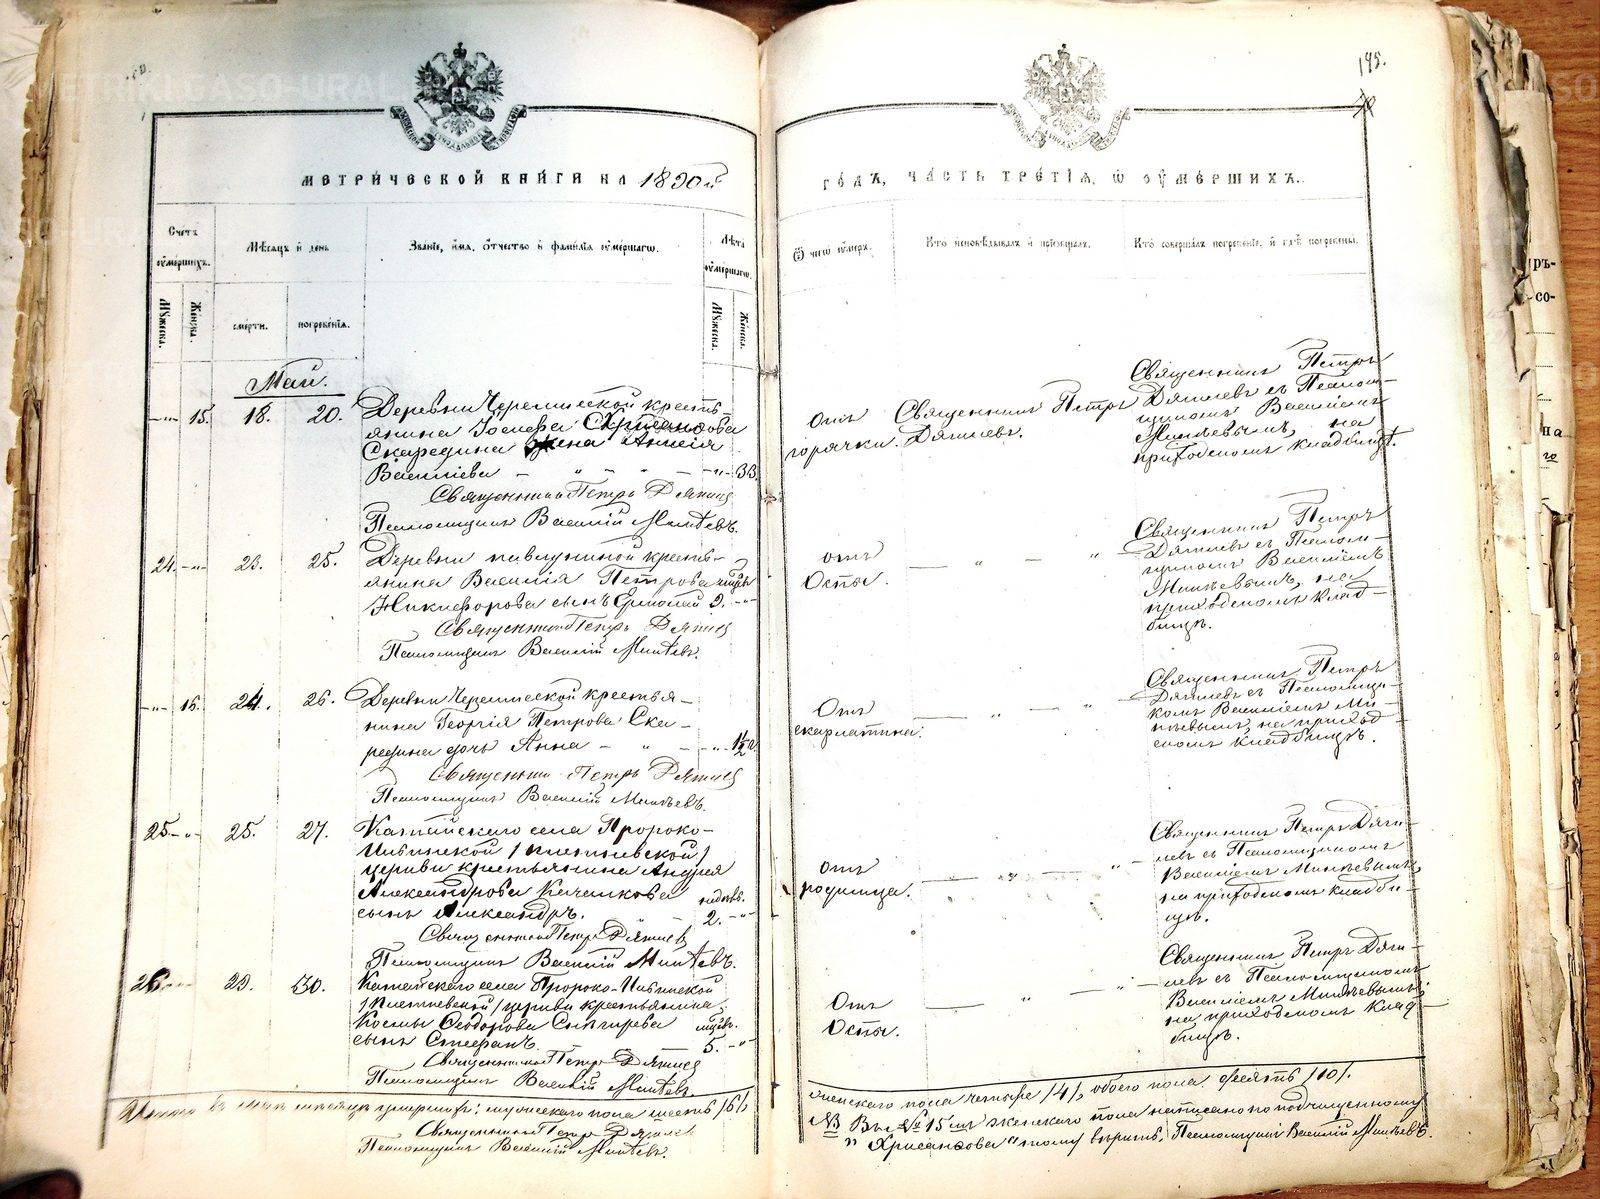 145.
МЕТРИЧЕСКОЙ КНИГИ НА 1890й
ГОДЪ, ЧАСТЬ ТРЕТІЯ, Ѡ ОУМЕРШИХЪ.
Счетъ оумершихъ.
Мѣсяцъ и день
Званіе, имя, отчество и фамилія оумершагѡ.
Лѣта оумершагѡ.
Ѿ чегѡ оумеръ.
Кто исповѣдывалъ и пріобщалъ.
Кто совершалъ погребеніе, и гдѣ погребены.
Мужеска.
Женска.
смерти.
погребенія.
Мужеска.
Женска.
Май.
15. 18. 20.
Деревни Черемисской кресть-
янина Іосифа Хрисанѳова
Скаредина жена Анисія
Василіева 33.
Священникъ Петръ Дягилевъ
Псаломщикъ Василій Минѣевъ.
Отъ
горячки.
Священникъ Петръ
Дягилевъ.
Священникъ Петръ
Дягилевъ съ Псалом-
щикомъ Василіемъ
Минѣевымъ, на
приходскомъ кладбищѣ.
24. 23. 25.
Деревни крестья-
янина Василія Петрова
Никифорова сынъ Ермолай 9.
Священникъ Петръ Дягилевъ
Псаломщикъ Василій Минѣевъ.
отъ
Оспы.
Священникъ Петръ
Дягилевъ съ Псалом-
щикомъ Василіемъ
Минѣевымъ, на
приходскомъ клад-
бищѣ.
16. 24. 26.
Деревни Черемисской крестья-
нина Георгія Петрова Ска-
редина дочь Анна 1½
Священникъ Петръ Дягилевъ
Псаломщикъ Василій Минѣевъ.
Отъ
скарлатины.
Священникъ Петръ
Дягилевъ съ Псаломщи-
комъ Василіемъ Ми-
нѣевымъ, на приход-
скомъ кладбищѣ.
25. 25. 27.
Катайскаго села Пророко-
Ильинской /Плетневской/
церкви крестьянина Андрея
Александрова Качалкова недѣль.
сынъ Александръ. 2.
Священникъ Петръ Дягилевъ
Псаломщикъ Василій Минѣевъ.
отъ
родимца.
Священникъ Петръ Дяги-
левъ съ Псаломщикомъ
Василіемъ Минѣевымъ,
на приходскомъ кладби-
щѣ.
26. 29. 30.
Катайскаго села Пророко-Ильинской
/Плетневской/ церкви крестьянина
Космы Ѳеодорова Снигирева
сынъ Стефанъ. 5.
Священникъ Петръ Дягилевъ
Псаломщикъ Василій Минѣевъ.
Отъ
Оспы.
Священникъ Петръ Дяги-
левъ съ Псаломщикомъ
Василіемъ Минѣевымъ,
на приходскомъ клад-
бищѣ.
въ маѣ мѣсяцѣ умершихъ: мужескаго пола шесть /6/,
женскаго пола четыре /4/, обоего пола десять /10/.
Священникъ Петръ Дягилевъ
Псаломщикъ Василій Минѣевъ.
NB Въ № 15м женскаго пола написано по подчищенному
"Хрисанѳова" тому вѣрить. Псаломщикъ Василій Минѣевъ.